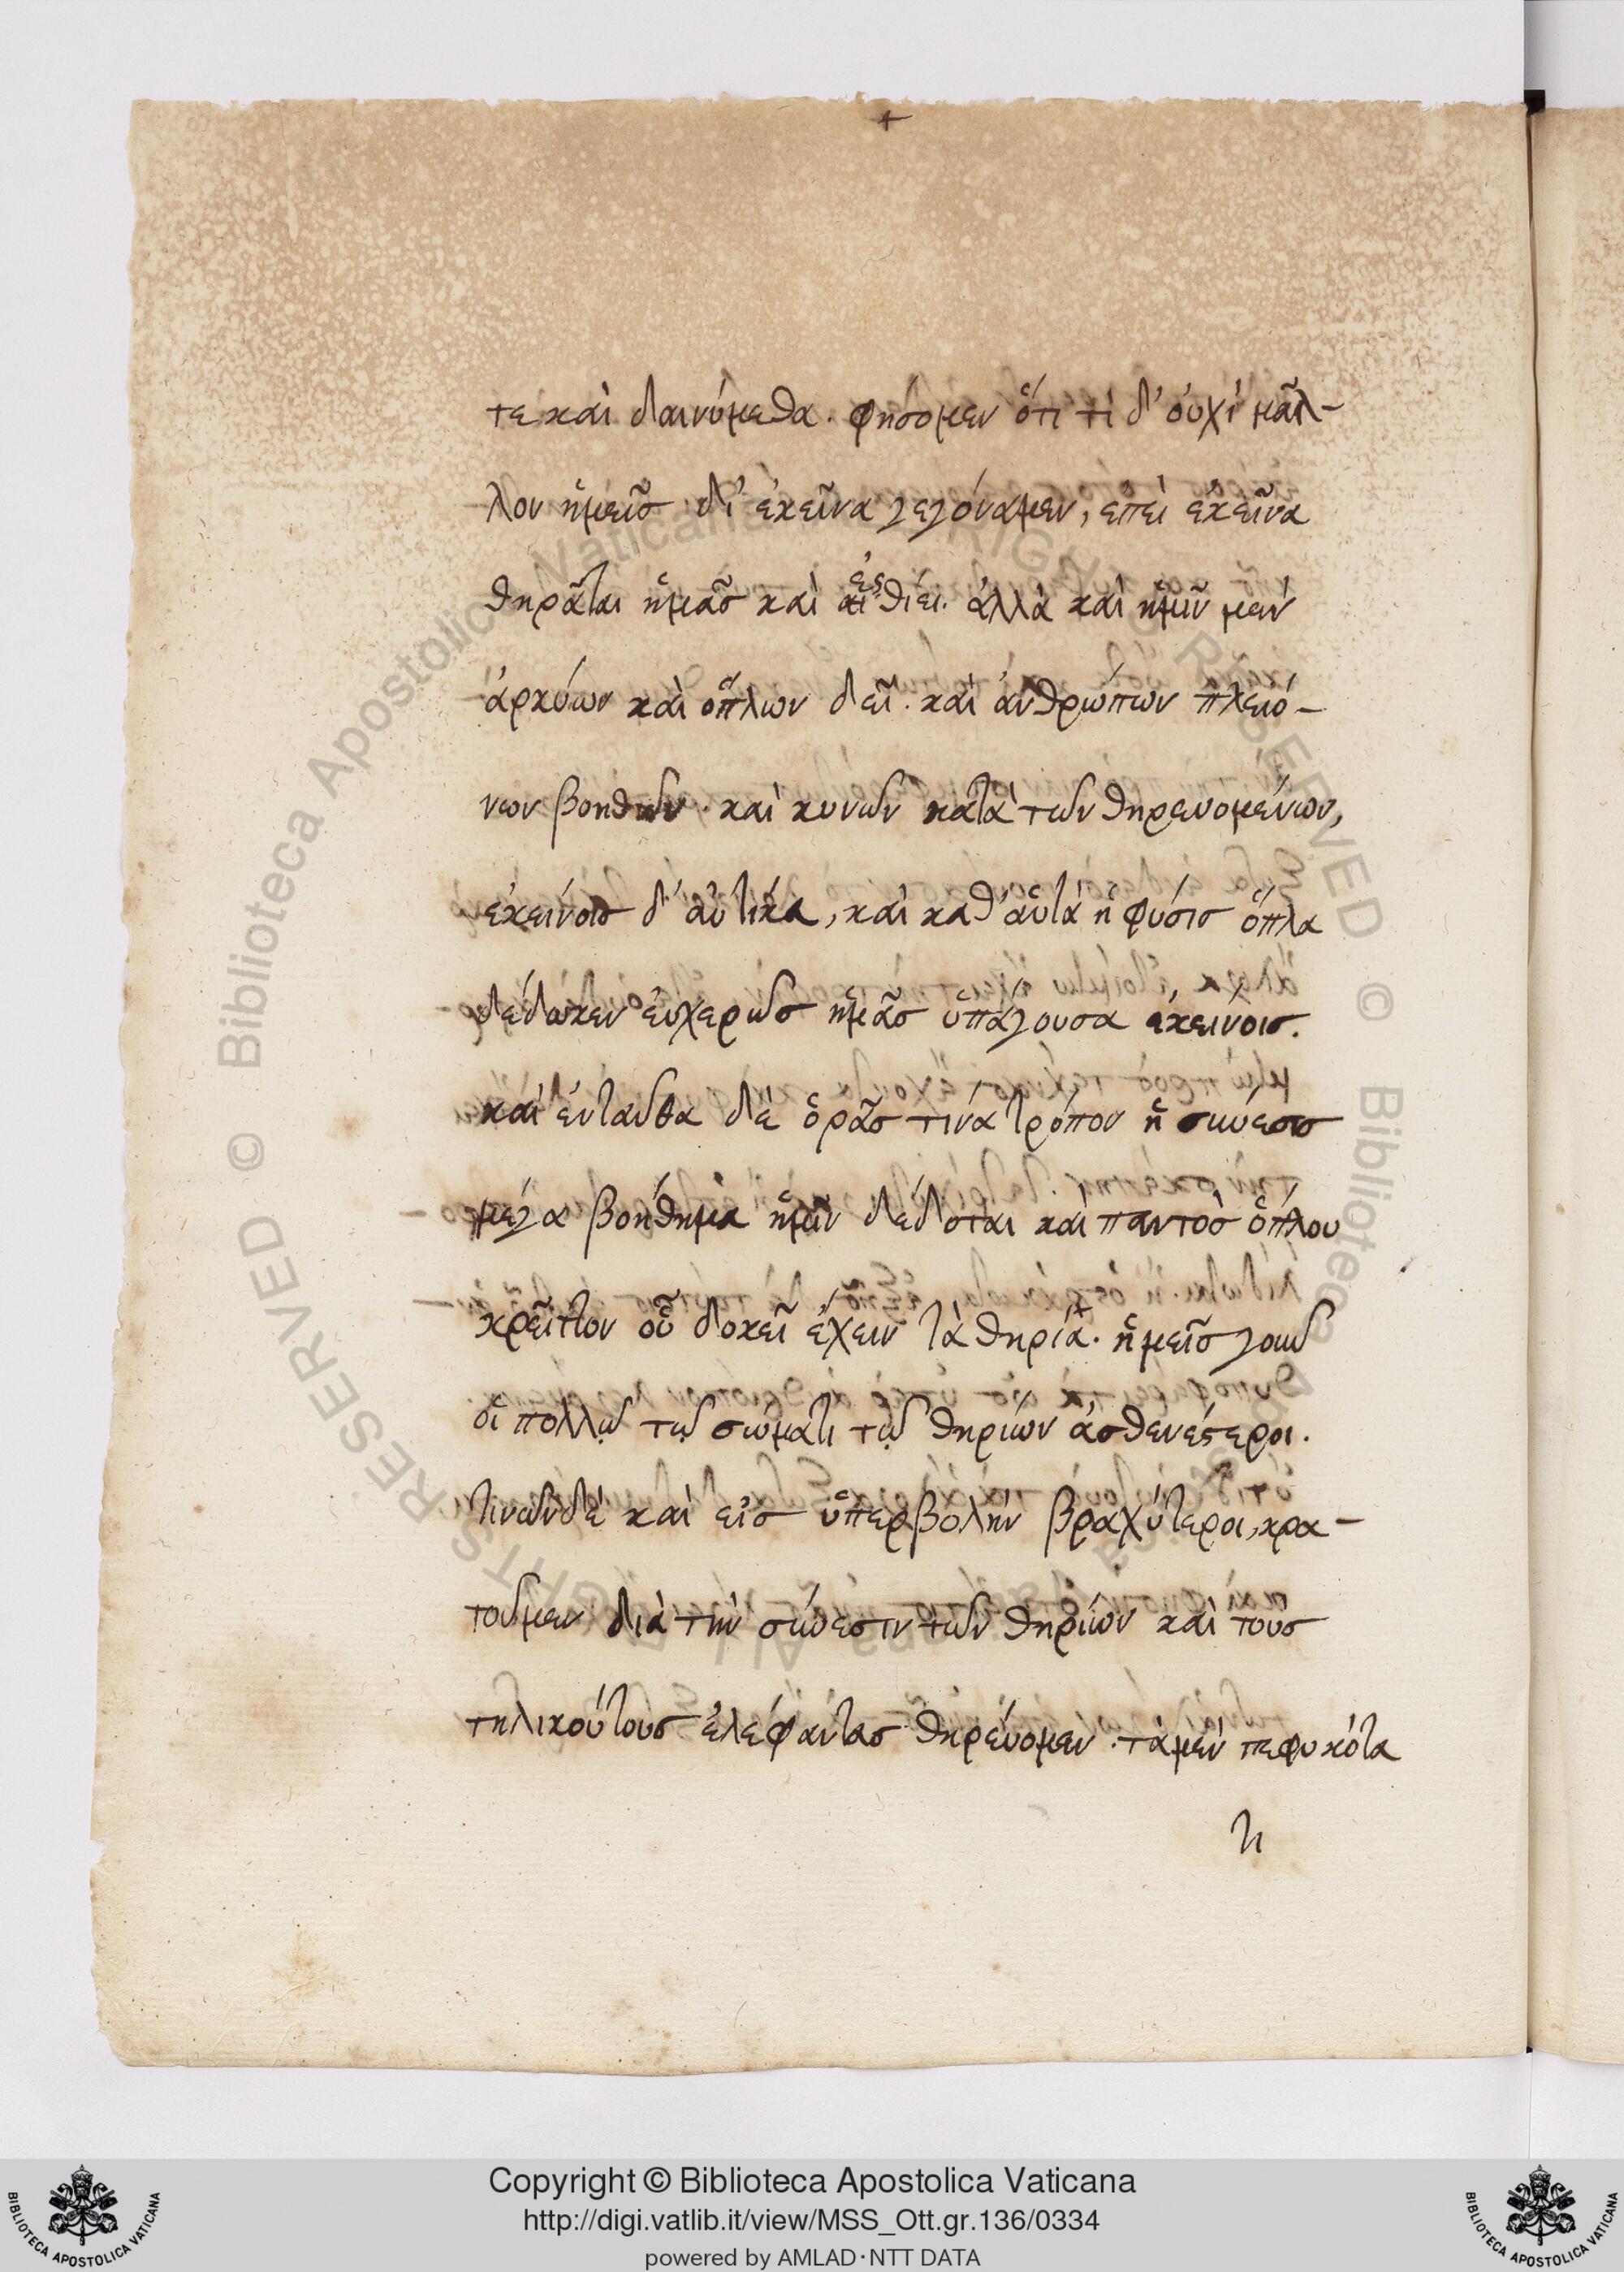 +
τε καὶ δαινύμεθα. φήσομεν ὅτι τί δ' οὐχὶ μᾶλ-
λον ἡμεῖς δι' ἐκεῖνα γεγόναμεν, ἐπεὶ ἐκεῖνα
θηρᾶται ἡμᾶς καὶ ἐσθίει. ἀλλὰ καὶ ἡμῖν μὲν
ἀρκύων καὶ ὅπλων δεῖ. καὶ ἀνθρώπων πλειό-
νων βοηθῶν. καὶ κυνῶν κατὰ τῶν θηρευομένων,
ἐκείνοις δ' αὐτίκα, καὶ καθ' αὑτὰ ἡ φύσις ὅπλα
δέδωκεν εὐχερῶς ἡμᾶς ὑπάγουσα ἐκείνοις.
καὶ ἐνταῦθα δὲ ὁρᾶς τίνα τρόπον ἡ σύνεσις
μέγα βοήθημα ἡμῖν δέδοται καὶ παντὸς ὅπλου
κρεῖττον οὗ δοκεῖ ἔχειν τὰ θηρία. ἡμεῖς γοῦν
οἱ πολλῷ τῷ σώματι τῶν θηρίων ἀσθενέστεροι.
τινῶν δὲ καὶ εἰς ὑπερβολὴν βραχύτεροι, κρα-
τοῦμεν διὰ τὴν σύνεσιν τῶν θηρίων καὶ τοὺς
τηλικούτους ἐλέφαντας θηρεύομεν. τὰ μὲν πεφυκότα
Copyright © Biblioteca Apostolica Vaticana
http://digi.vatlib.it/view/MSS_Ott.gr.136/0334
powered by AMLAD·NTT DATA